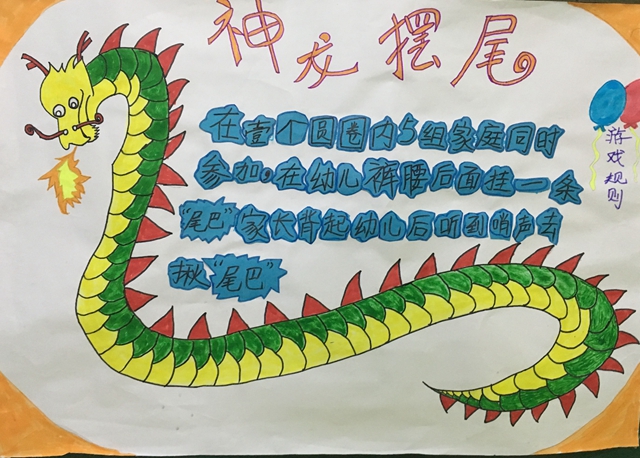 神龙摆尾
在壹个圆圈内5组家庭同时
参加,在幼儿裤腰后面挂一条
"尾巴"家长背起幼儿后听到哨声去
揪"尾巴"
游戏规则